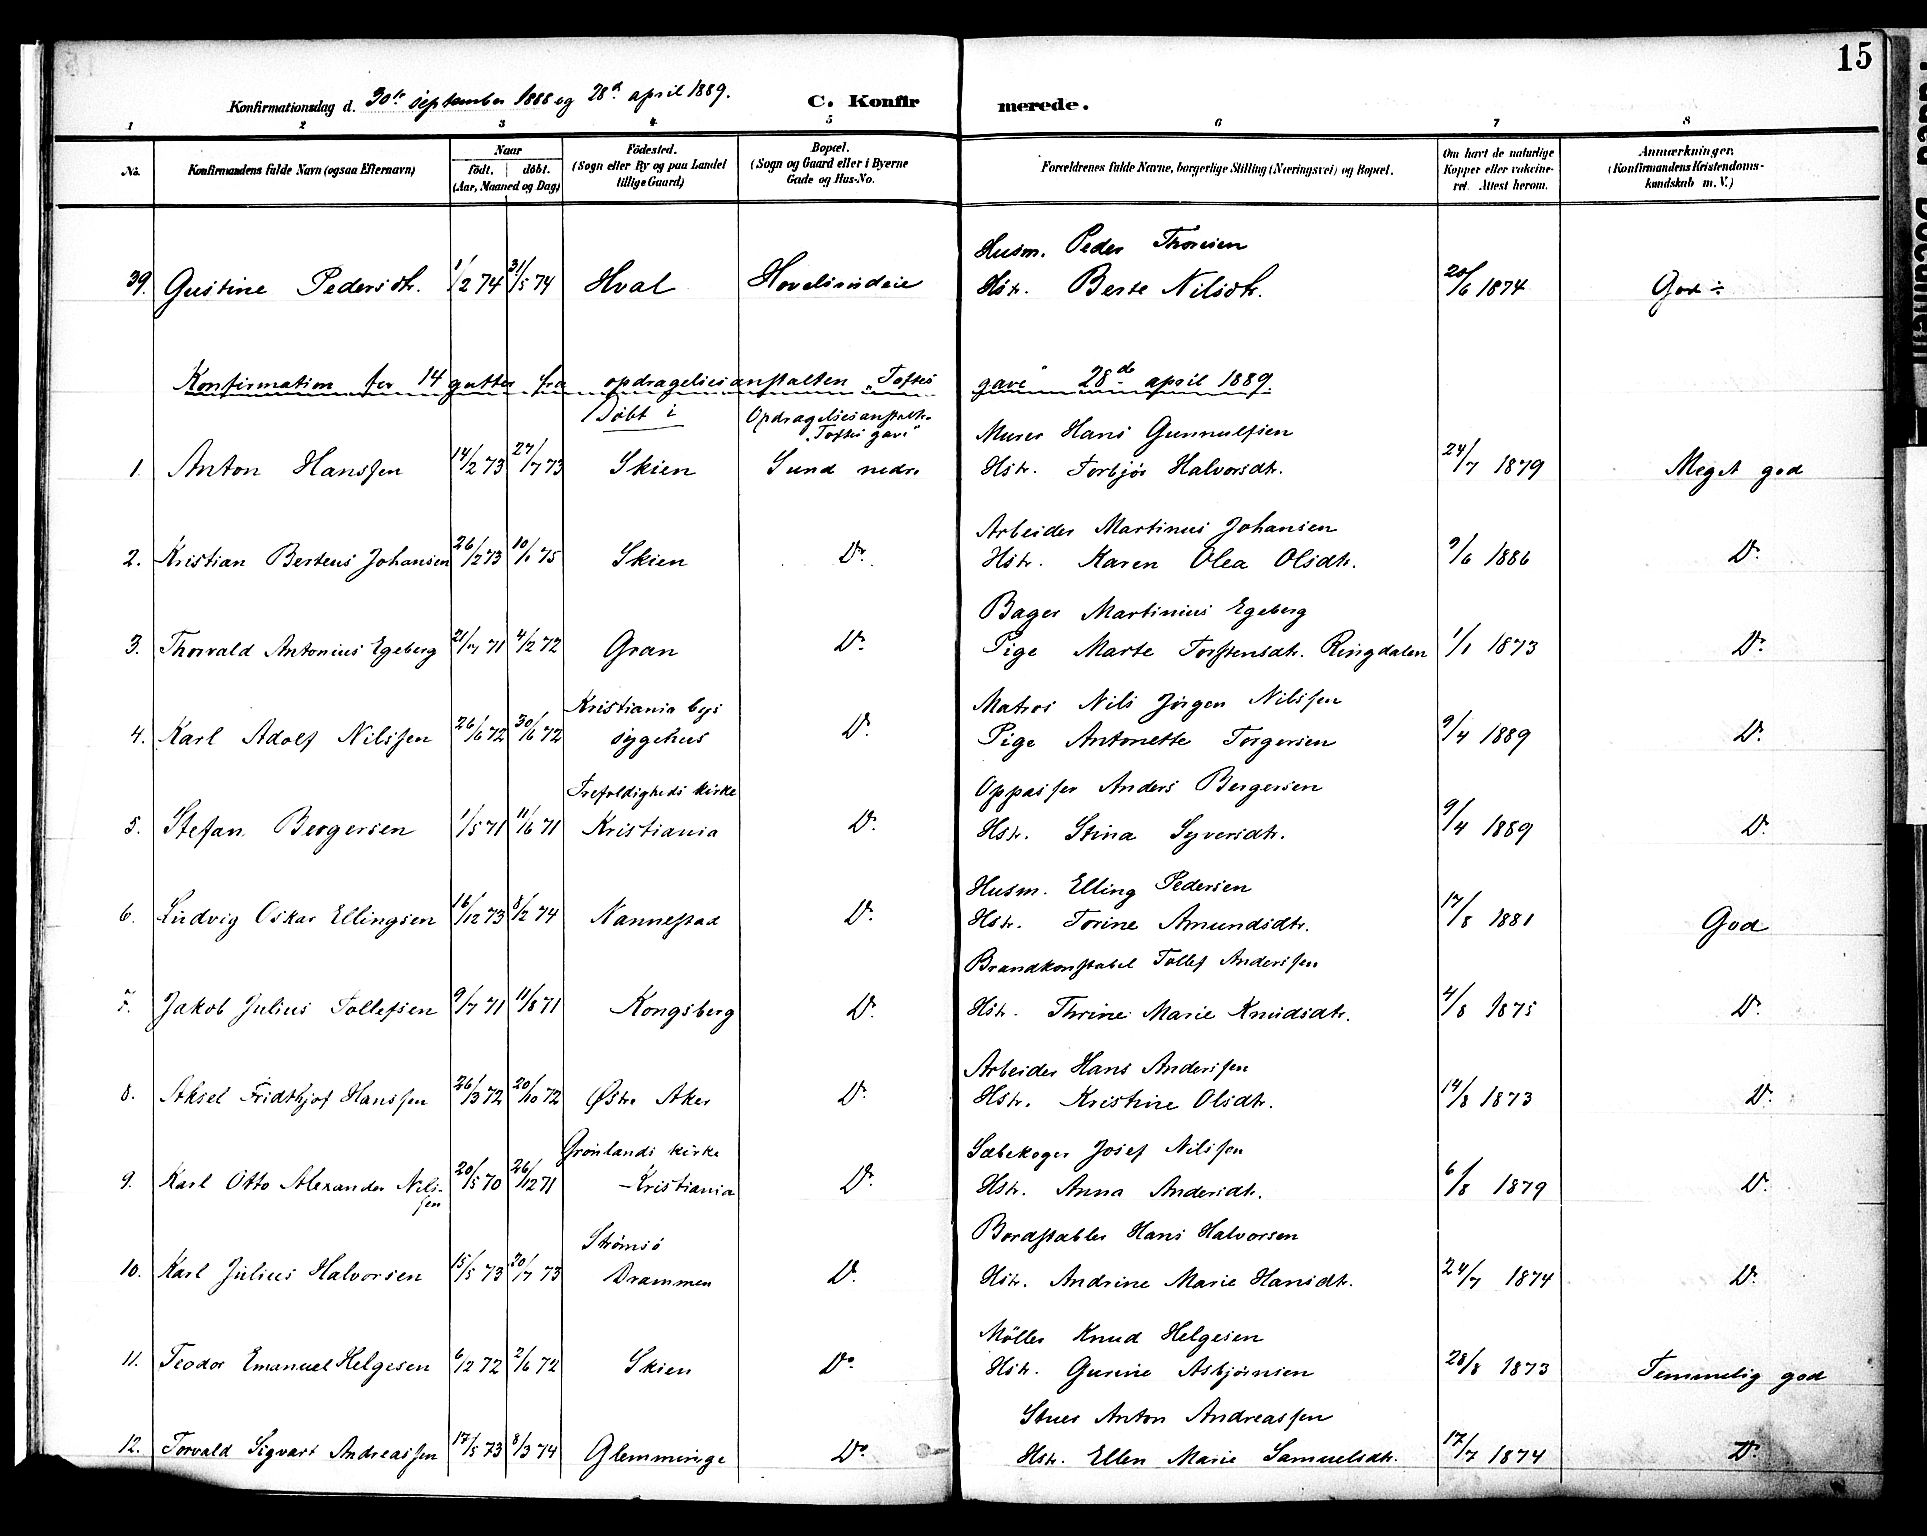 15
Konfirmationsdag d. 30te september 1888 og 28de april 1889. C. Konfirmerede.
1 2 3 4 5 6 7 8
No. Konfirmandens fulde Navn (ogsaa Efternavn) Naar født, døbt. (Aar, Maaned og Dag) Födested. (Sogn eller By og paa Landet tillige Gaard) Bopæl. (Sogn og Gaard eller i Byerne Gade og Hus-No. Forældrenes fulde Navne, borgerlige Stilling (Næringsvei) og Bopæl. Om havt de naturlige Kopper eller vakcineret. Attest herom. Anmærkninger. (Konfirmandens Kristendomskundskab m. V.)
Husm. Peder Thoresen
39. Gustine Pedersdtr. 1/2 74 31/5 74 Hval Hovelsrudeie Hstr. Berte Nilsdtr. 20/6 1874 God ÷
Konfirmation for 14 gutter fra opdragelsesanstalten "Toftes gave" 28de april 1889.
Døbt i Opdragelsesanstalt. "Toftes gave" Murer Hans Gunnulfsen
1. Anton Hanssen 14/2 73 27/7 73 Skien Sund nedre Hstr. Torbjør Halvorsdtr. 24/7 1879 Meget god
Arbeider Martinus Johansen
2. Kristian Berteus Johansen 26/2 73 10/1 75 Skien Do. Hstr. Karen Olea Olsdtr. 9/6 1886 Do.
Bager Martinius Egeberg
3. Thorvald Antonius Egeberg 21/7 71 4/2 72 Gran Do. Pige Marte Torstensdtr. Ringdalen 1/1 1873 Do.
Kristiania bys Matros Nils Jørgen Nilssen
4. Karl Adolf Nilssen 26/6 72 30/6 72 sygehus Do. Pige Antonette Torgersen 9/4 1889 Do.
Trefoldigheds kirke Oppasser Anders Bergersen
5. Stefan Bergersen 1/5 71 11/6 71 Kristiania Do. Hstr. Stina Syversdtr. 9/4 1889 Do.
Husm. Elling Pedersen
6. Ludvig Oskar Ellingsen 16/12 73 8/2 74 Nannestad Do. Hstr. Torine Amundsdtr. 17/8 1881 God
Brandkonstabel Tollef Anderssen
7. Jakob Julius Tollefsen 9/7 71 11/8 71 Kongsberg Do. Hstr. Thrine Marie Knudsdtr. 4/8 1875 Do.
Arbeider Hans Anderssen
8. Aksel Fridthjof Hanssen 26/3 72 20/10 72 Østre Aker Do. Hstr. Kristine Olsdtr. 14/8 1873 Do.
Grønlands kirke Sæbekoger Josef Nilssen
9. Karl Otto Alexander Nilssen 20/5 70 26/12 71 - Kristiania Do. Hstr. Anna Andersdtr. 6/8 1879 Do.
Strømsø Bordstabler Hans Halvorsen
10. Karl Julius Halvorsen 15/5 73 20/7 73 Drammen Do. Hstr. Andrine Marie Hansdtr. 24/7 1874 Do.
Møller Knud Helgesen
11. Teodor Emanuel Helgesen 6/2 72 2/6 72 Skien Do. Hstr. Gurine Asbjørnsen 28/8 1873 Temmelig god
Stuer Anton Andreassen
12. Torvald Sigvart Andreassen 17/5 73 8/3 74 Glemminge Do. Hstr. Ellen Marie Samuelsdtr. 17/7 1874 Do.